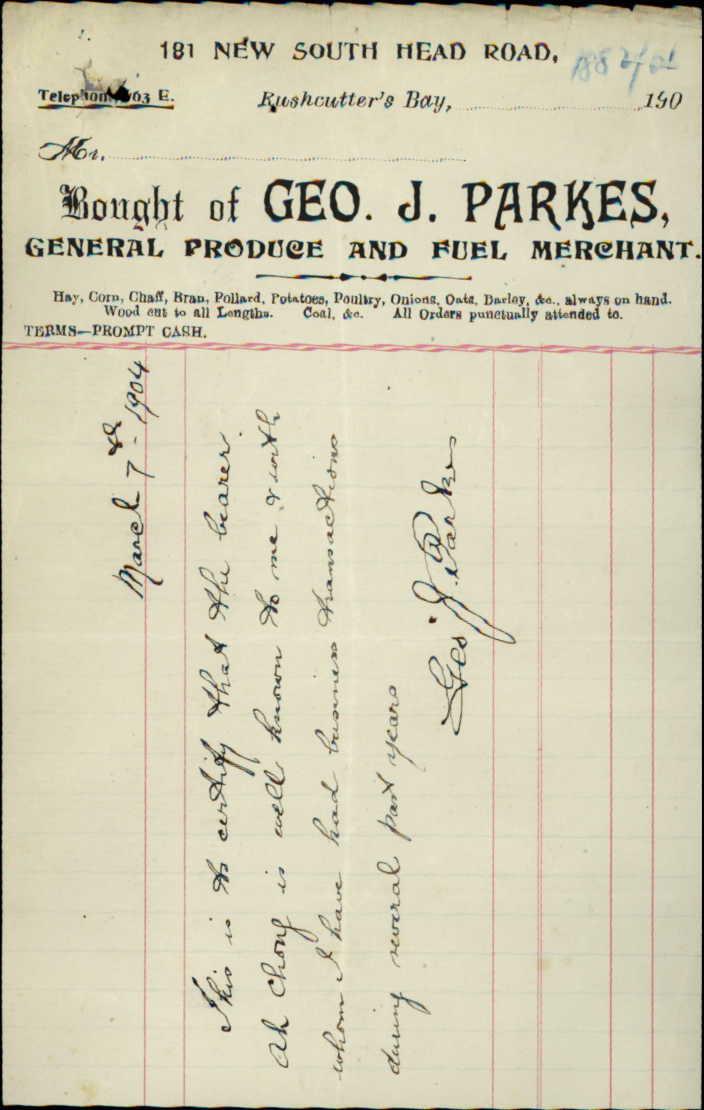 181 NEW SOUTH HEAD ROAD,
63 E.
Rushcutter's Bay, 190
Mr.
Bought of GEO. J. PARKES,
GENERAL PRODUCE AND FUEL MERCHANT.
Hay, Corn, Chaff, Bran, Pollard, Potatoes, Poultry, Onions, Oats, Barley, &c., always on hand.
Wood cut to all Lengths. Coal, &c. All Orders punctually attended to.
TERMS—PROMPT CASH.
March 7th - 1904
This is to certify that the bearer
Ah Chong is well known to me & with
whom I have had business transactions
during several past years
Geo J. Parkes